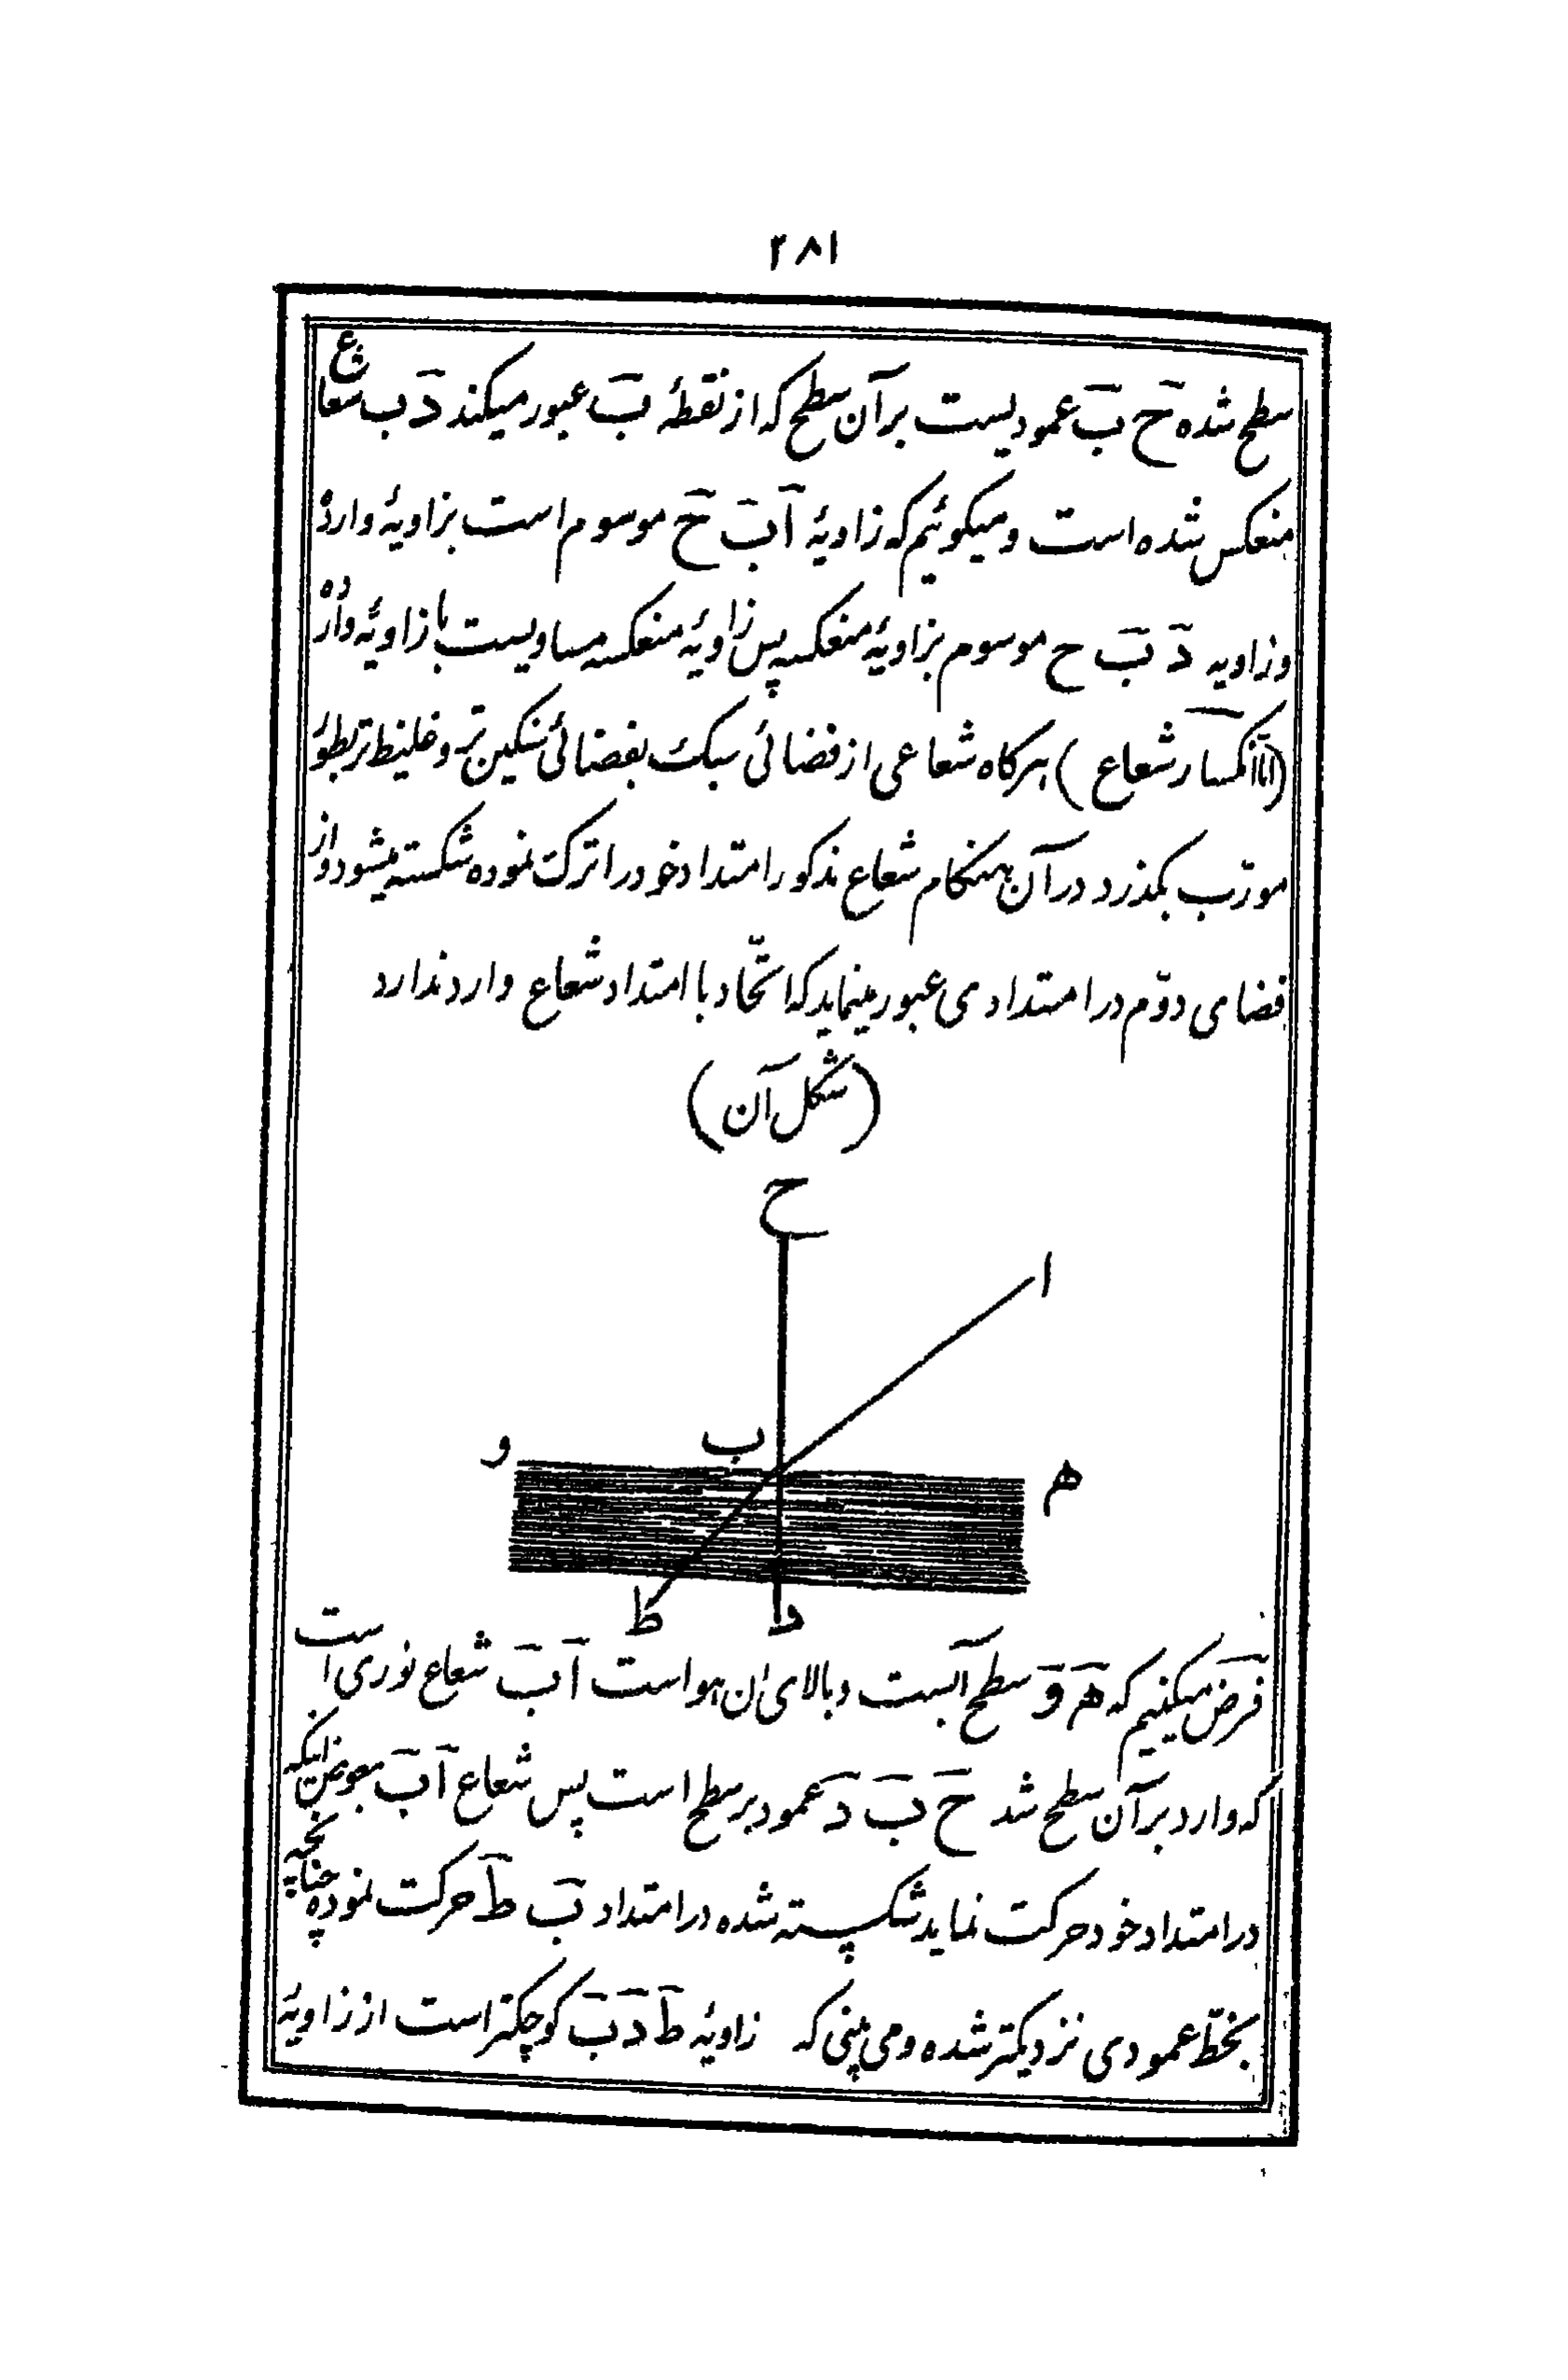 ۲۸۱
سطح شده ح ب عمودیست بر آن سطح که از نقطهٔ ب عبور میکند د ب شعاع
منعکس شده است و میکوئیم که زاویهٔ ا ب ح موسوم است بزاویهٔ وارده
و زاویه د ب ح موسوم بزاویهٔ منعکسه پس زاویهٔ منعکسه مساویست با زاویهٔ وارده
(اما انکسار شعاع) هرکاه شعاعی از فضائی سبک بفضائی سنکین تر و غلیظ تر بطور
مورب بکذرد در آن هنکام شعاع مذکور امتداد خود را ترک نموده شکسته میشود و از
فضای دوّم در امتدادی عبور مینماید که اتّحاد با امتداد شعاع وارد ندارد
(شکل آن)
ح
ا
ب
و
ه
ط
د
فرض میکنیم که ه و سطح آبست و بالای ان هواست ا ب شعاع نوری است
که وارد بر آن سطح شد ح ب د عمود بر سطح است پس شعاع ا ب بعوض اینکه
در امتداد خود حرکت نماید شکسته شده در امتداد ب ط حرکت نموده چنانچه
بخطّ عمودی نزدیکتر شده و می بینی که زاویهٔ ط د ب کوچکتر است از زاویهٔ